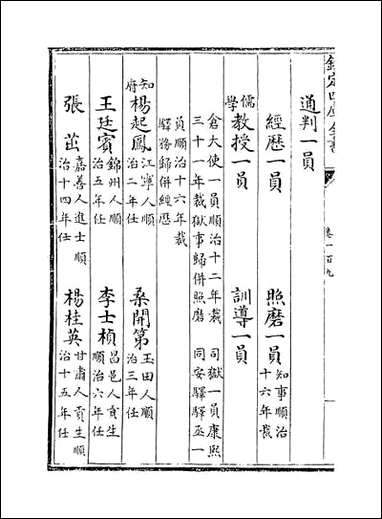 欽定四庫全書
卷一百九
通判一員
經歷一員 照磨一員知事順治十六年裁
儒學教授一員 訓導一員
倉大使一員順治十二年裁 司獄一員康熙
三十一年裁獄事歸併照磨 同安驛驛丞一
員順治十六年裁
驛務歸併經歷
知府楊起鳳江寧人順治二年任 桑開第玉田人順治三年任
王廷賓錦州人順治五年任 李士楨昌邑人貢生順治六年任
張茁嘉善人進士順治十四年任 楊桂英甘肅人貢生順治十五年任